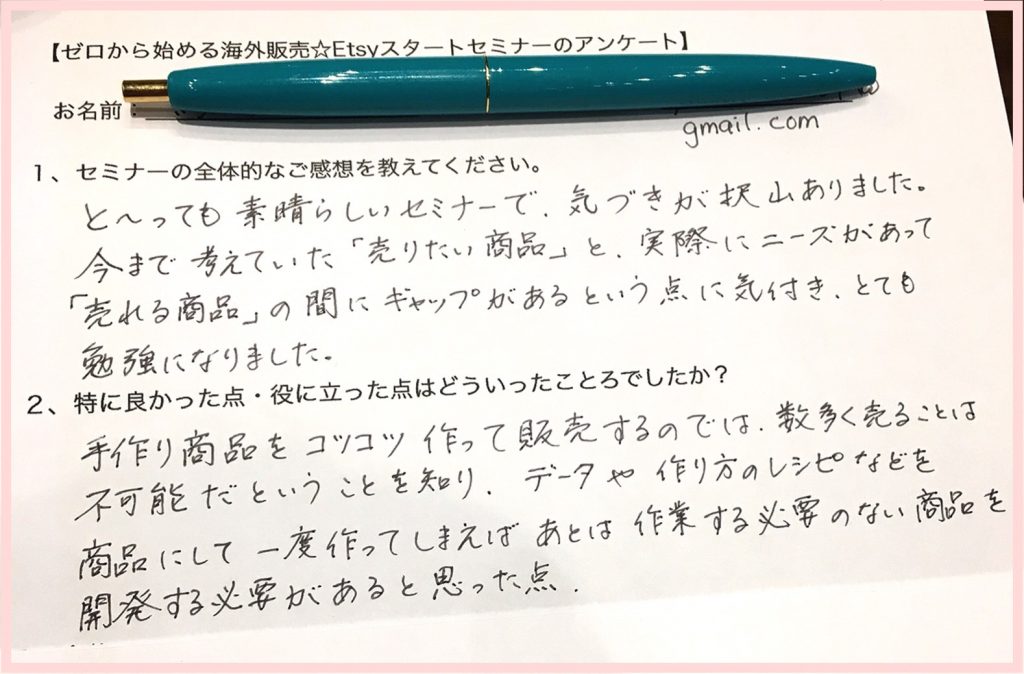 【ゼロから始める海外販売☆Etsyスタートセミナーのアンケート】
お名前
gmail.com
1、セミナーの全体的なご感想を教えてください。
と〜っても素晴らしいセミナーで、気づきが沢山ありました。
今まで考えていた「売りたい商品」と、実際にニーズがあって
「売れる商品」の間にギャップがあるという点に気付き、とても
勉強になりました。
2、特に良かった点・役に立った点はどういったことろでしたか？
手作り商品をコツコツ作って販売するのでは、数多く売ることは
不可能だということを知り、データや作り方のレシピなどを
商品にして一度作ってしまえばあとは作業する必要のない商品を
開発する必要があると思った点.